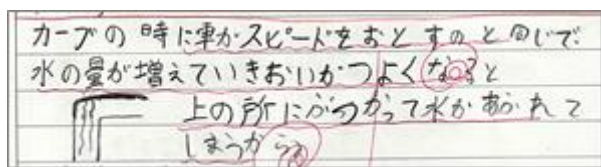 カーブの時に車がスピードをおとすのと同じで
水の量が増えていきおいがつよくなると
上の所にぶつかって水があふれて
しまうから。